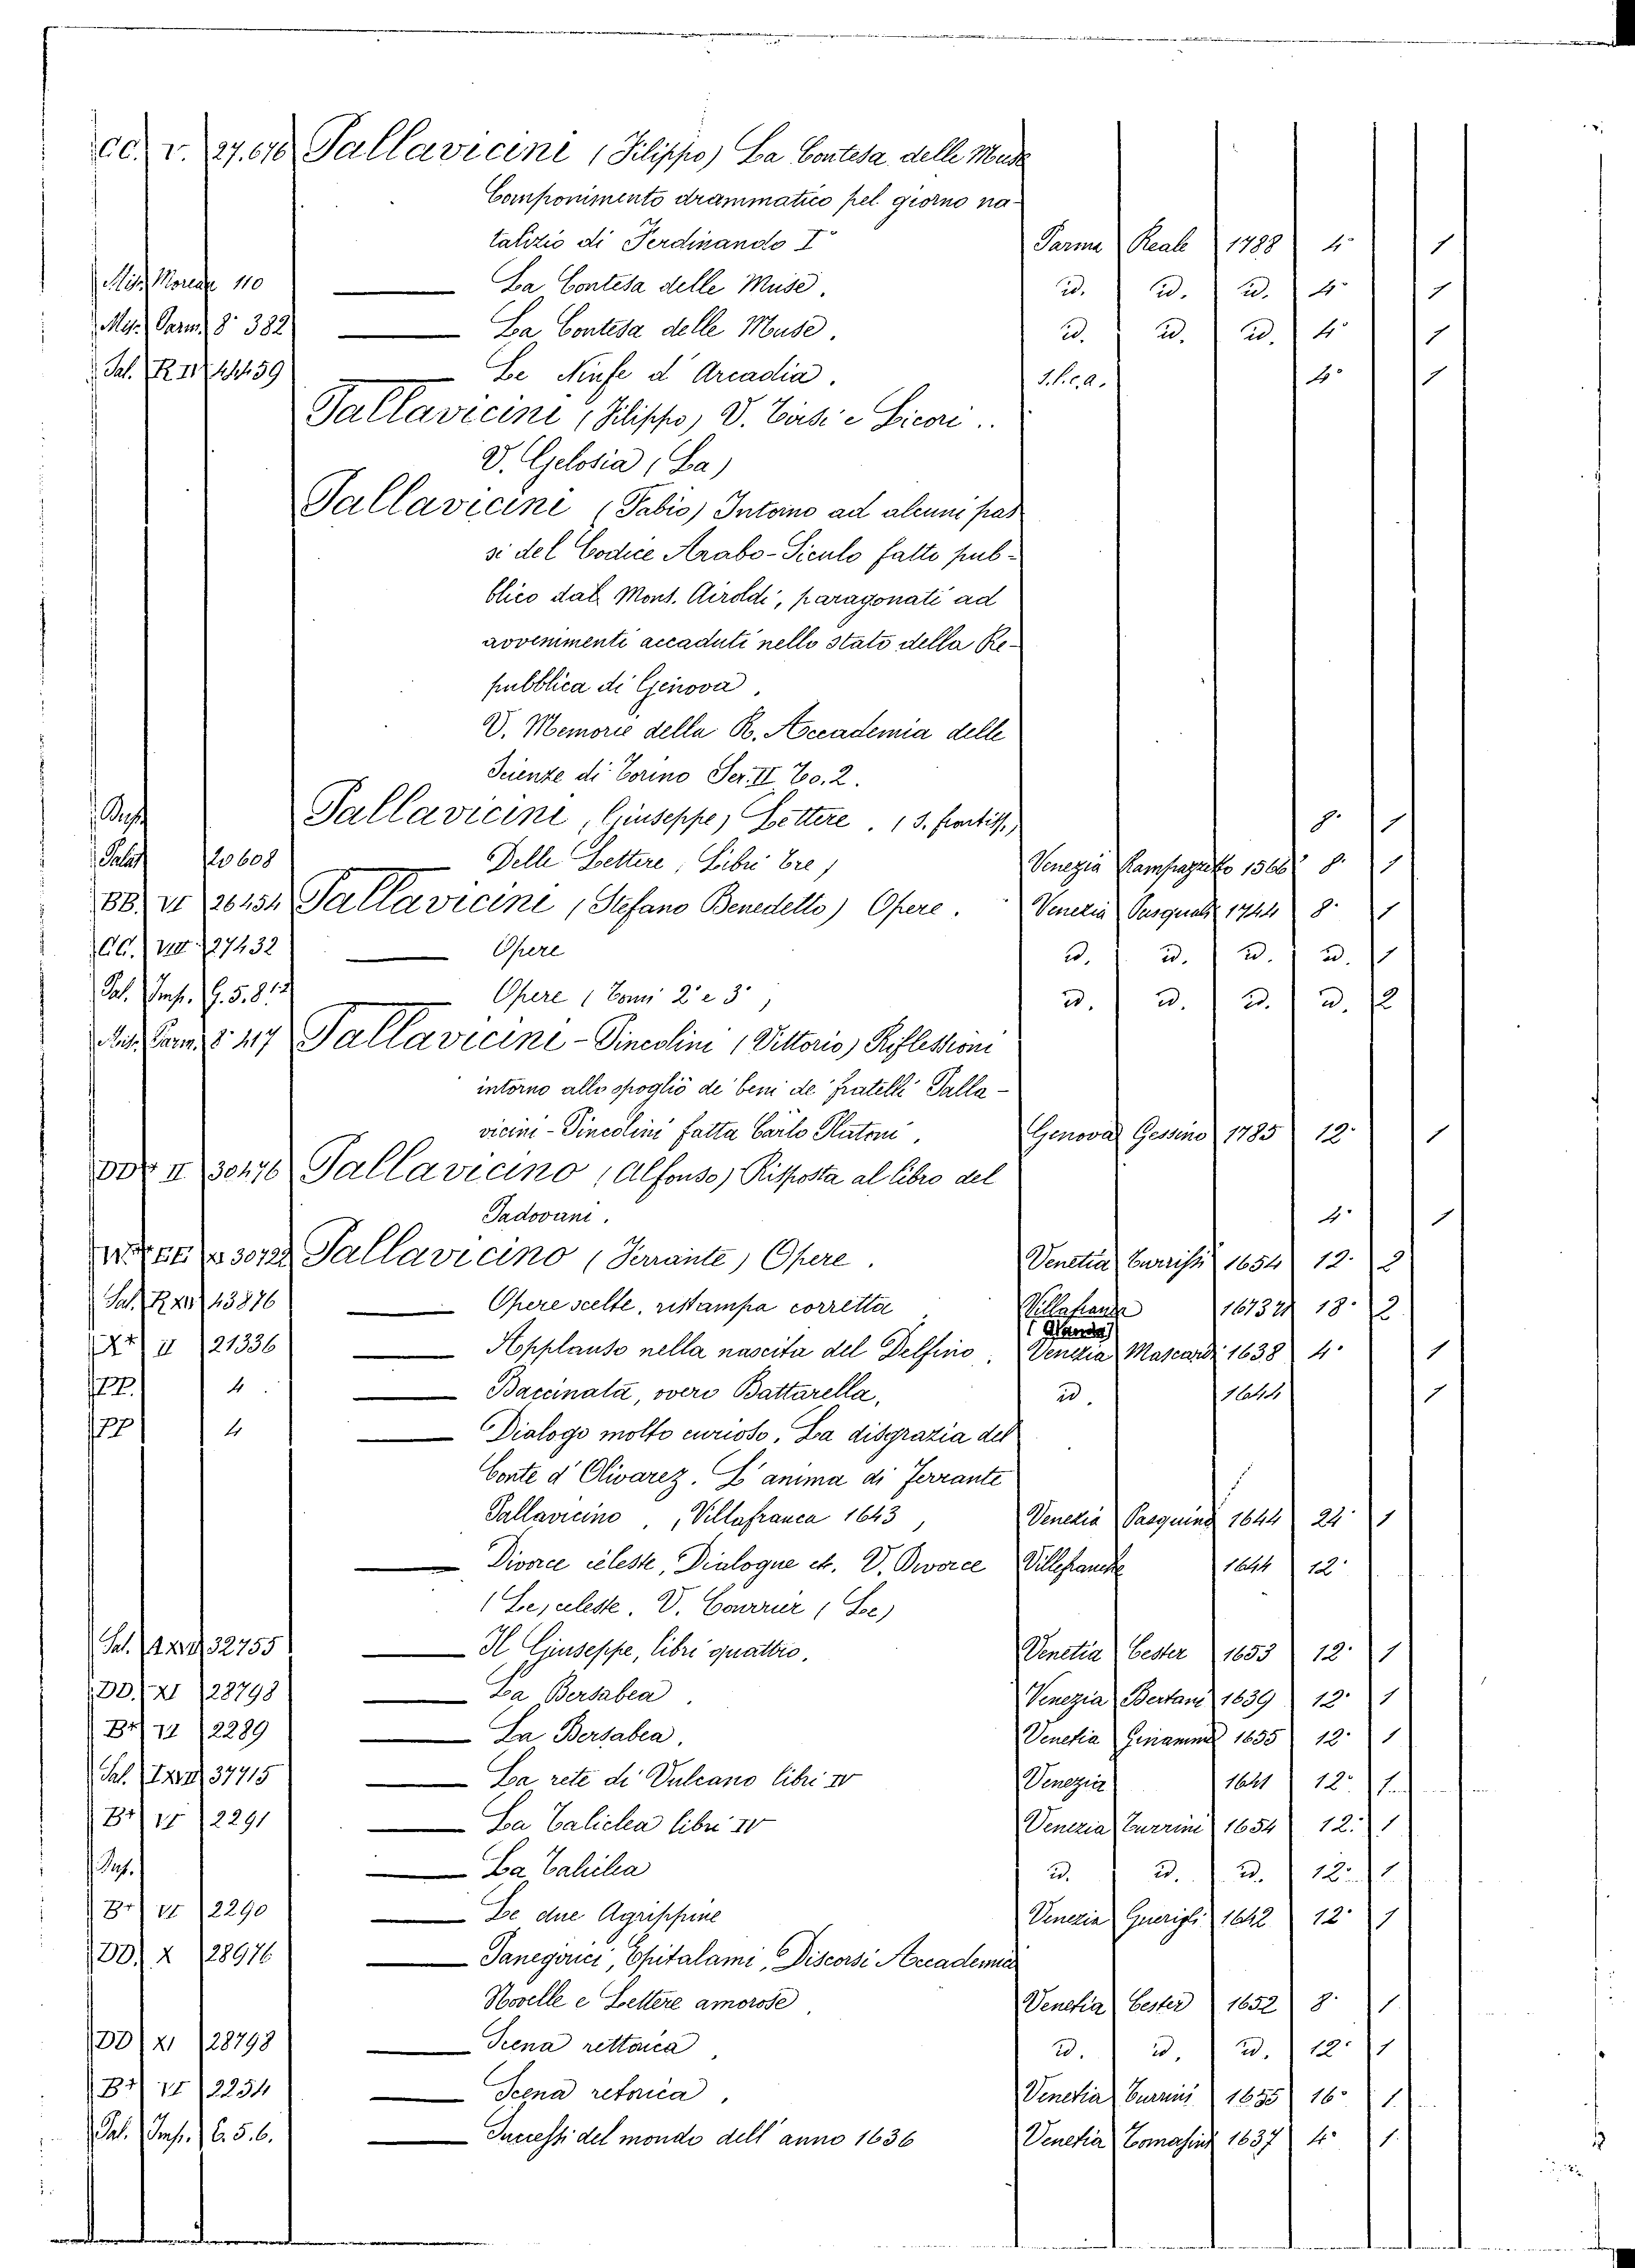 CC. V. 27.676 Pallavicini (Filippo) La Contesa delle Muse
Componimento drammatico pel giorno na-
talizio di Ferdinando I° Parma Reale 1788 4° 1
Misc. Moreau 110 La Contesa delle Muse. id. id. id. 4° 1
Misc. Parm. 8° 382 La Contesa delle Muse. id. id. id. 4° 1
Pal. Le Ninfe d'Arcadia. S.l.e.a. 4° 1
Pallavicini (Filippo) V. Tirsi e Licori..
V. Gelosia (La)
Pallavicini (Fabio) Intorno ad alcuni pas
si del Codice Arabo-Siculo fatto pub-
blico dal Mons. Airoldi, paragonati ad
avvenimenti accaduti nello stato della Re-
pubblica di Genova.
V. Memorie della R. Accademia delle
Scienze di Torino Ser. II To. 2.
Pallavicini (Giuseppe) Lettere. (S. frontisp.) 8° 1
Palat 20608 Delle Lettere, Libri tre, Venezia Rampazetto 1566 8° 1
BB. VI 26454 Pallavicini (Stefano Benedetto) Opere. Venezia Pasquali 1744 8° 1
CC. VIII 27432 Opere id. id. id. id. 1
Pal. Imp. G. 5. 812 Opere (Tomi 2° e 3°) id. id. id. id. 2
Misc. Parm. 8° 417 Pallavicini-Pincolini (Vittorio) Riflessioni
intorno allo spoglio de' beni de' fratelli Palla-
vicini-Pincolini fatta Carlo Platoni. Genova Gessino 1785 12° 1
DD II 30476 Pallavicino (Alfonso) Risposta al libro del
Padovani. 4° 1
30722 Pallavicino (Ferrante) Opere. Venetia Turrini 1654 12° 2
Pal. 43876 Opere scelte, ristampa corretta Villafranca 1673 18° 2
(Olanda)
II 21336 Applauso nella nascita del Delfino. Venezia Mascardi 1638 4° 1
PP. 4 Baccinata, overo Battarella, id. 1644 1
PP 4 Dialogo molto curioso. La disgrazia del
Conte d'Olivarez. L'anima di Ferrante
Pallavicino, Villafranca 1643, Venezia Pasquino 1644 24° 1
Divorce celeste, Dialogue etc. V. Divorce Villefranche 1644 12°
(Le) celeste. V. Courrier (Le)
Pal. 32755 Il Giuseppe, libri quattro. Venetia Cester 1653 12° 1
DD. XI 28798 La Bersabea. Venezia Bertani 1639 12° 1
2289 La Bersabea. Venetia Ginammi 1655 12° 1
Pal. 37715 La rete di Vulcano libri IV Venezia 1641 12° 1
2291 La Taliclea libri IV Venezia Turrini 1654 12° 1
La Taliclea id. id. id. 12° 1
VI 2290 Le due Agrippine Venezia Guerigli 1642 12° 1
DD. X 28976 Panegirici, Epitalami, Discorsi Accademici
Novelle e Lettere amorose. Venetia Cester 1652 8° 1
DD XI 28798 Scena rettorica, id. id. id. 12° 1
2254 Scena retorica, Venetia Turrini 1655 16° 1
Pal. Imp. C. 5. 6. Successi del mondo dell'anno 1636 Venetia Tomasini 1637 4° 1